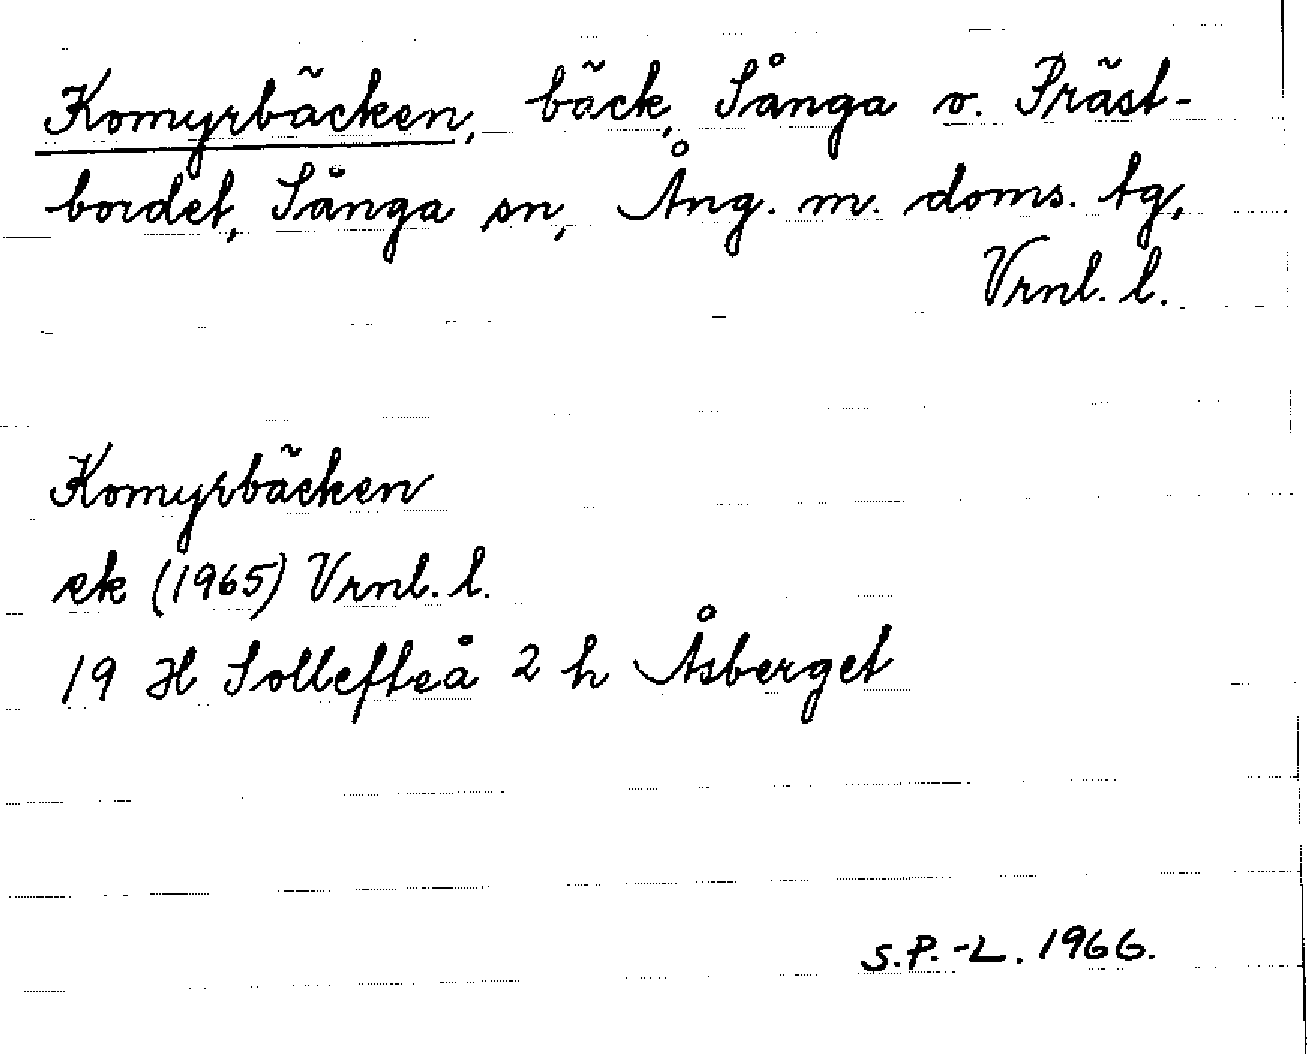 Komyrbäcken, bäck, Sånga o. Präst-
bordet, Sånga sn, Ång. m. doms. tg,
Vrnl. l.
Komyrbäcken
ek (1965) Vrnl. l.
19 H Sollefteå 2 h Åsberget
S.P.-L. 1966.